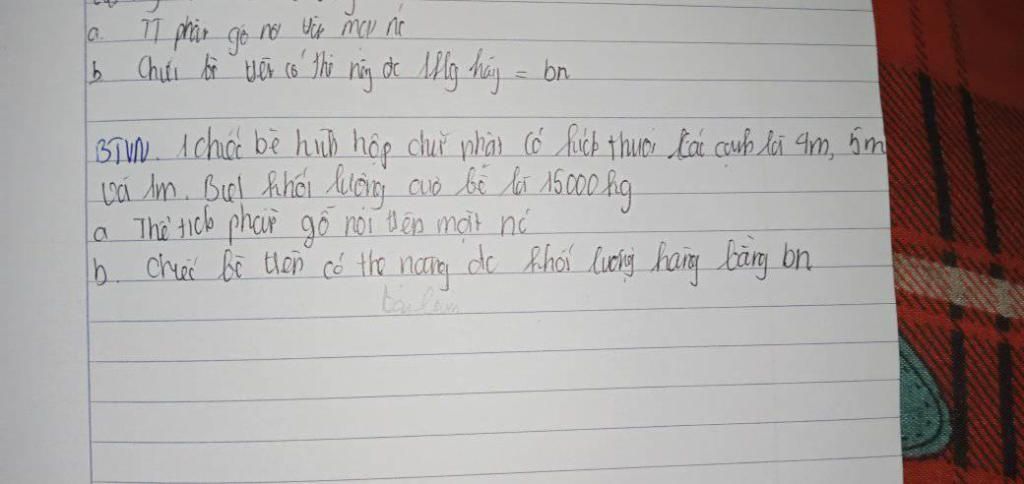 a. TT phần gỗ nổi trên mặt nc
b Chiếc bè trên có thể nâng dc = bn
BTVN. 1 chiếc bè hình hộp chữ nhật có kích thước các cạnh là 4m, 5m
và 1m. Biết khối lượng của bè là 15000kg
a Thể tích phần gỗ nổi trên mặt nc
b. Chiếc bè trên có thể nâng dc khối lượng hàng bằng bn
bài làm